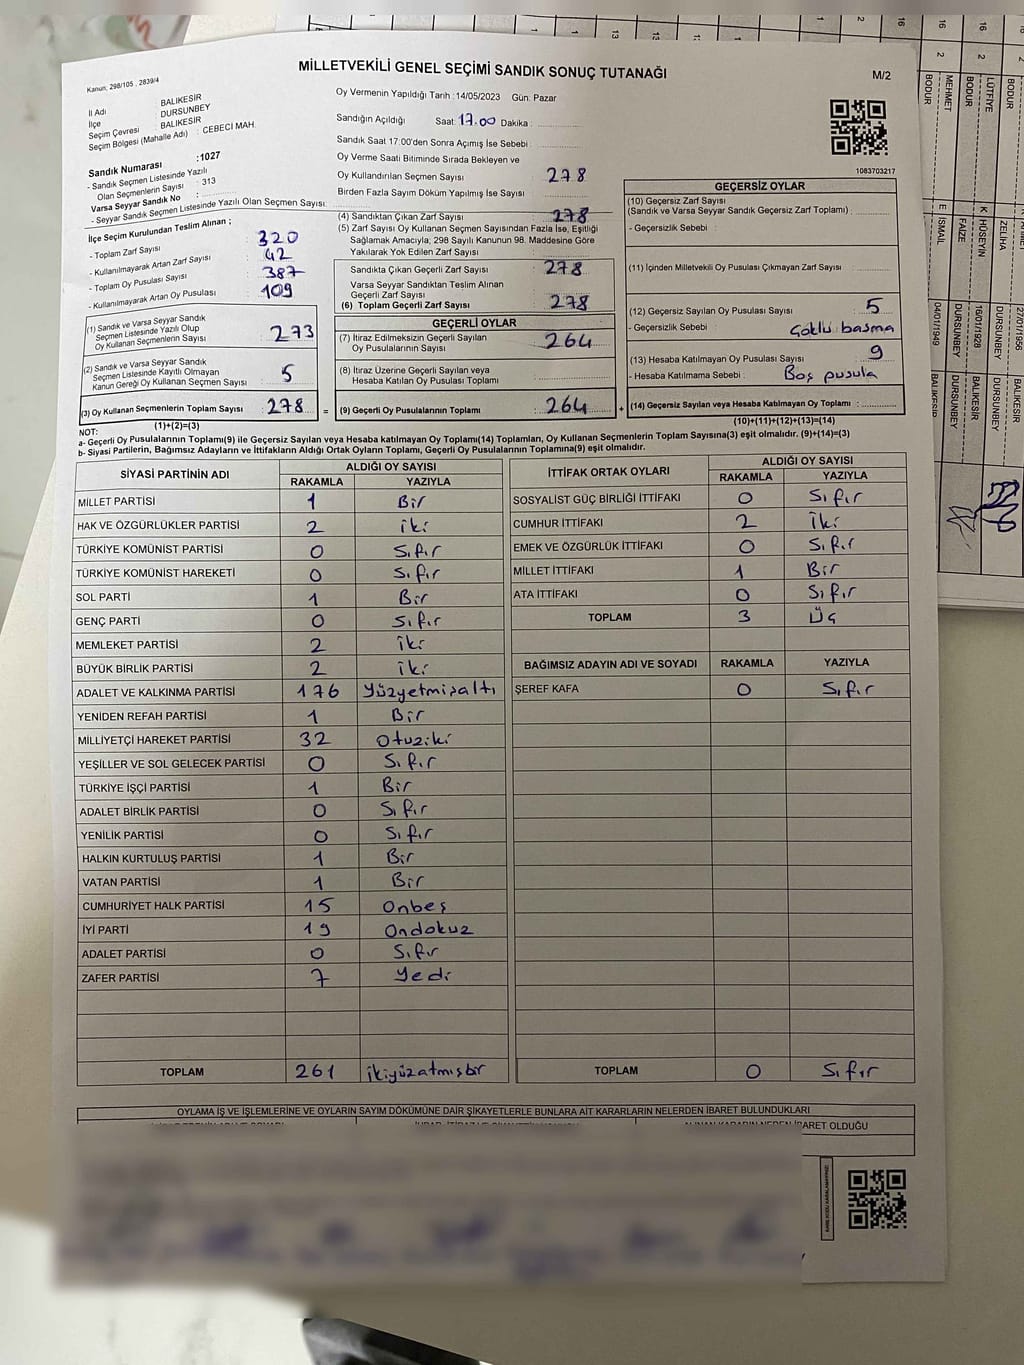 MİLLETVEKİLİ GENEL SEÇİMİ SANDIK SONUÇ TUTANAĞI
M/2
Kanun: 298/105 , 2839/4
İl Adı BALIKESİR
İlçe : DURSUNBEY
Seçim Çevresi : BALIKESİR
Seçim Bölgesi (Mahalle Adı) : CEBECİ MAH.
Sandık Numarası :1027
- Sandık Seçmen Listesinde Yazılı
Olan Seçmenlerin Sayısı : 313
Varsa Seyyar Sandık No :
- Seyyar Sandık Seçmen Listesinde Yazılı Olan Seçmen Sayısı:
Oy Vermenin Yapıldığı Tarih :14/05/2023 Gün: Pazar
Sandığın Açıldığı Saat: 17.00 Dakika :
Sandık Saat 17:00'den Sonra Açımış İse Sebebi :
Oy Verme Saati Bitiminde Sırada Bekleyen ve
Oy Kullandırılan Seçmen Sayısı 278
Birden Fazla Sayım Döküm Yapılmış İse Sayısı
1083703217
İlçe Seçim Kurulundan Teslim Alınan ;
- Toplam Zarf Sayısı 320
- Kullanılmayarak Artan Zarf Sayısı 42
- Toplam Oy Pusulası Sayısı 387
- Kullanılmayarak Artan Oy Pusulası 109
(1) Sandık ve Varsa Seyyar Sandık
Seçmen Listesinde Yazılı Olup
Oy Kullanan Seçmenlerin Sayısı : 273
(2) Sandık ve Varsa Seyyar Sandık
Seçmen Listesinde Kayıtlı Olmayan
Kanun Gereği Oy Kullanan Seçmen Sayısı : 5
(3) Oy Kullanan Seçmenlerin Toplam Sayısı : 278 =
(1)+(2)=(3)
(4) Sandıktan Çıkan Zarf Sayısı : 278
(5) Zarf Sayısı Oy Kullanan Seçmen Sayısından Fazla İse, Eşitliği
Sağlamak Amacıyla; 298 Sayılı Kanunun 98. Maddesine Göre
Yakılarak Yok Edilen Zarf Sayısı :
Sandıkta Çıkan Geçerli Zarf Sayısı : 278
Varsa Seyyar Sandıktan Teslim Alınan
Geçerli Zarf Sayısı :
(6) Toplam Geçerli Zarf Sayısı : 278
GEÇERLİ OYLAR
(7) İtiraz Edilmeksizin Geçerli Sayılan
Oy Pusulalarının Sayısı : 264
(8) İtiraz Üzerine Geçerli Sayılan veya
Hesaba Katılan Oy Pusulası Toplamı :
(9) Geçerli Oy Pusulalarının Toplamı : 264 +
GEÇERSİZ OYLAR
(10) Geçersiz Zarf Sayısı
(Sandık ve Varsa Seyyar Sandık Geçersiz Zarf Toplamı) :
- Geçersizlik Sebebi :
(11) İçinden Milletvekili Oy Pusulası Çıkmayan Zarf Sayısı :
(12) Geçersiz Sayılan Oy Pusulası Sayısı 5
- Geçersizlik Sebebi : Çoklu basma
(13) Hesaba Katılmayan Oy Pusulası Sayısı 9
- Hesaba Katılmama Sebebi : Boş pusula
(14) Geçersiz Sayılan veya Hesaba Katılmayan Oy Toplamı :
(10)+(11)+(12)+(13)=(14)
NOT:
a- Geçerli Oy Pusulalarının Toplamı(9) ile Geçersiz Sayılan veya Hesaba katılmayan Oy Toplamı(14) Toplamları, Oy Kullanan Seçmenlerin Toplam Sayısına(3) eşit olmalıdır. (9)+(14)=(3)
b- Siyasi Partilerin, Bağımsız Adayların ve İttifakların Aldığı Ortak Oyların Toplamı, Geçerli Oy Pusulalarının Toplamına(9) eşit olmalıdır.
SİYASİ PARTİNİN ADI ALDIĞI OY SAYISI
RAKAMLA YAZIYLA
MİLLET PARTİSİ 1 Bir
HAK VE ÖZGÜRLÜKLER PARTİSİ 2 iki
TÜRKİYE KOMÜNİST PARTİSİ 0 Sıfır
TÜRKİYE KOMÜNİST HAREKETİ 0 Sıfır
SOL PARTİ 1 Bir
GENÇ PARTİ 0 Sıfır
MEMLEKET PARTİSİ 2 iki
BÜYÜK BİRLİK PARTİSİ 2 iki
ADALET VE KALKINMA PARTİSİ 176 Yüzyetmişaltı
YENİDEN REFAH PARTİSİ 1 Bir
MİLLİYETÇİ HAREKET PARTİSİ 32 Otuziki
YEŞİLLER VE SOL GELECEK PARTİSİ 0 Sıfır
TÜRKİYE İŞÇİ PARTİSİ 1 Bir
ADALET BİRLİK PARTİSİ 0 Sıfır
YENİLİK PARTİSİ 0 Sıfır
HALKIN KURTULUŞ PARTİSİ 1 Bir
VATAN PARTİSİ 1 Bir
CUMHURİYET HALK PARTİSİ 15 Onbeş
İYİ PARTİ 19 Ondokuz
ADALET PARTİSİ 0 Sıfır
ZAFER PARTİSİ 7 Yedi
TOPLAM 261 ikiyüzatmışbir
İTTİFAK ORTAK OYLARI ALDIĞI OY SAYISI
RAKAMLA YAZIYLA
SOSYALİST GÜÇ BİRLİĞİ İTTİFAKI 0 Sıfır
CUMHUR İTTİFAKI 2 İki
EMEK VE ÖZGÜRLÜK İTTİFAKI 0 Sıfır
MİLLET İTTİFAKI 1 Bir
ATA İTTİFAKI 0 Sıfır
TOPLAM 3 Üç
BAĞIMSIZ ADAYIN ADI VE SOYADI RAKAMLA YAZIYLA
ŞEREF KAFA 0 Sıfır
TOPLAM 0 Sıfır
OYLAMA İŞ VE İŞLEMLERİNE VE OYLARIN SAYIM DÖKÜMÜNE DAİR ŞİKAYETLERLE BUNLARA AİT KARARLARIN NELERDEN İBARET BULUNDUKLARI
İBARET OLDUĞU
16 2 MEHMET BODUR E İSMAİL 04/01/1949 BALIKESİR
16 2 LÜTFİYE BODUR K HÜSEYİN FAİZE 16/01/1928 DURSUNBEY BALIKESİR DURSUNBEY
BODUR ZELİHA 27/01/1956 DURSUNBEY BALIKESİR DURSUNBEY